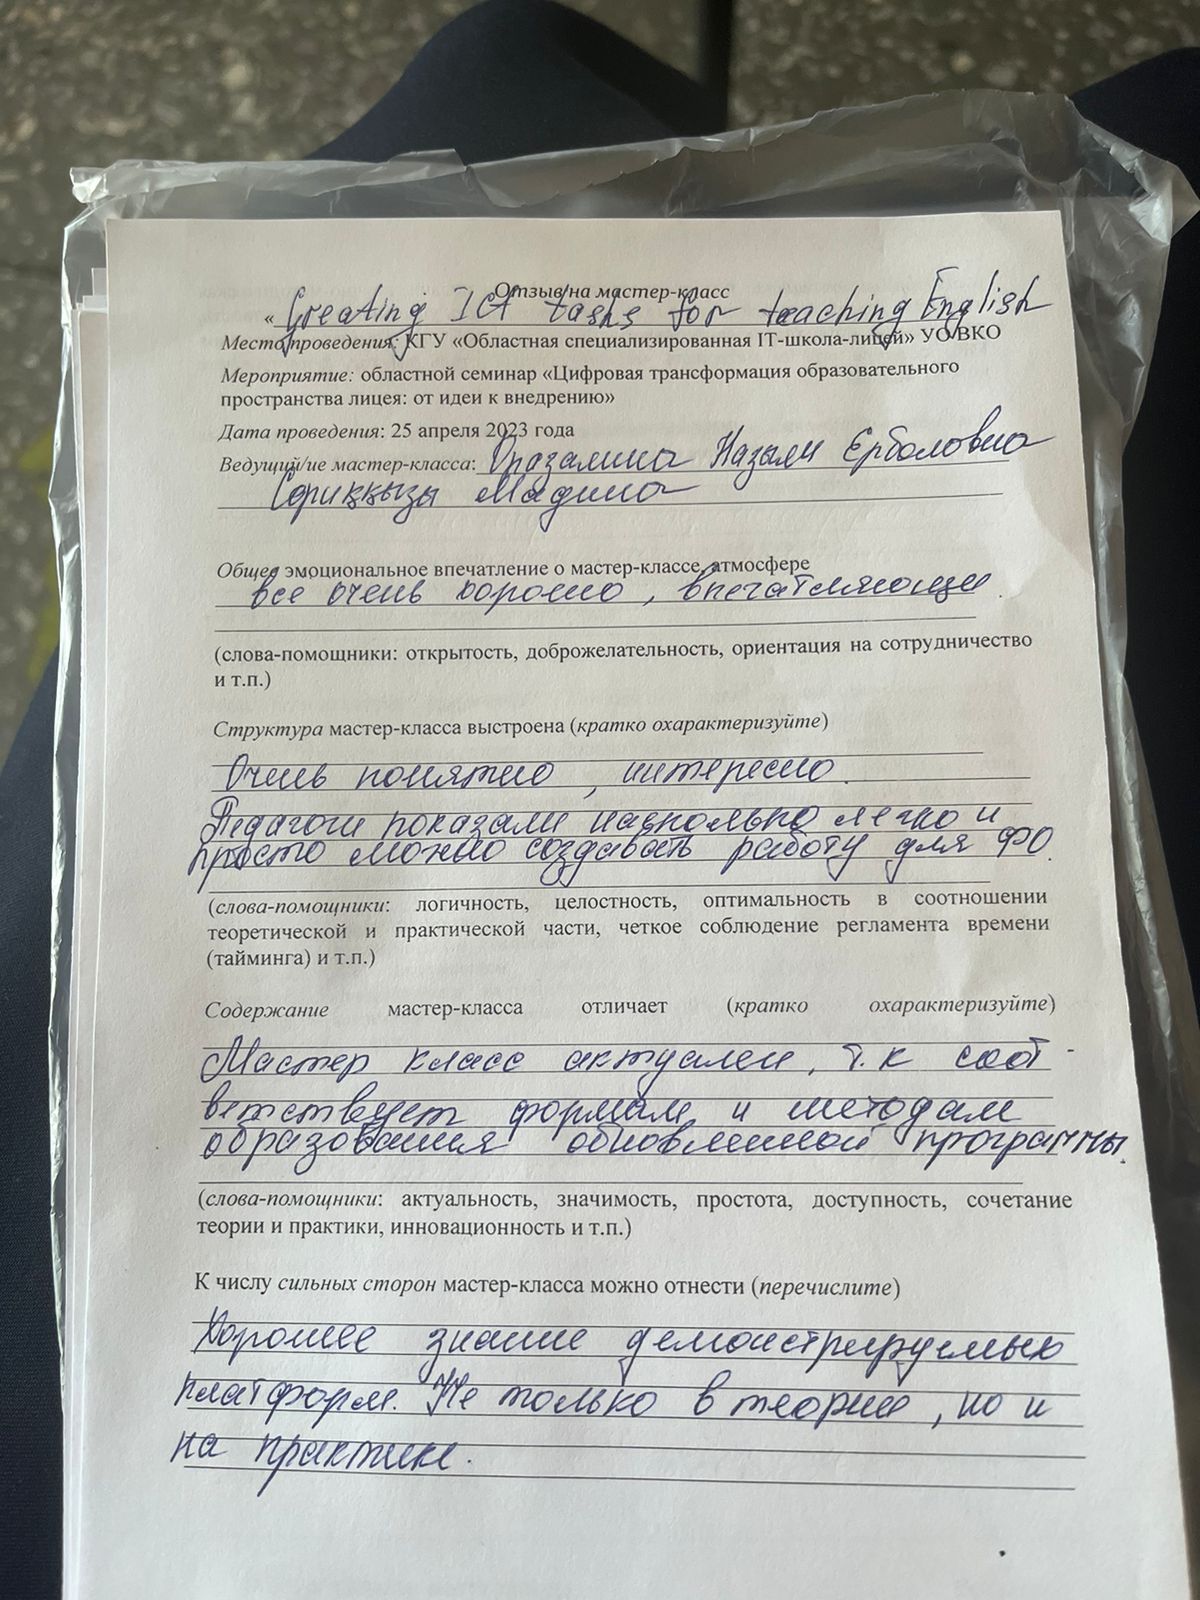 Отзыв на мастер-класс
« Creating ICT tasks for teaching English
Место проведения: КГУ «Областная специализированная IT-школа-лицей» УО ВКО
Мероприятие: областной семинар «Цифровая трансформация образовательного
пространства лицея: от идеи к внедрению»
Дата проведения: 25 апреля 2023 года
Ведущий/ие мастер-класса: Оразалина Назым Ерболовна
Мадина
Общее эмоциональное впечатление о мастер-классе, атмосфере
все очень хорошо, впечатляюще.
(слова-помощники: открытость, доброжелательность, ориентация на сотрудничество
и т.п.)
Структура мастер-класса выстроена (кратко охарактеризуйте)
Очень понятно, интересно.
Педагоги показали насколько легко и
просто можно создавать работу для ФО.
(слова-помощники: логичность, целостность, оптимальность в соотношении
теоретической и практической части, четкое соблюдение регламента времени
(тайминга) и т.п.)
Содержание мастер-класса отличает (кратко охарактеризуйте)
Мастер класс актуален, т.к соот-
ветствует формам и методам
образования обновленной программы.
(слова-помощники: актуальность, значимость, простота, доступность, сочетание
теории и практики, инновационность и т.п.)
К числу сильных сторон мастер-класса можно отнести (перечислите)
Хорошее знание демонстрируемых
платформ. Не только в теории, но и
на практике.